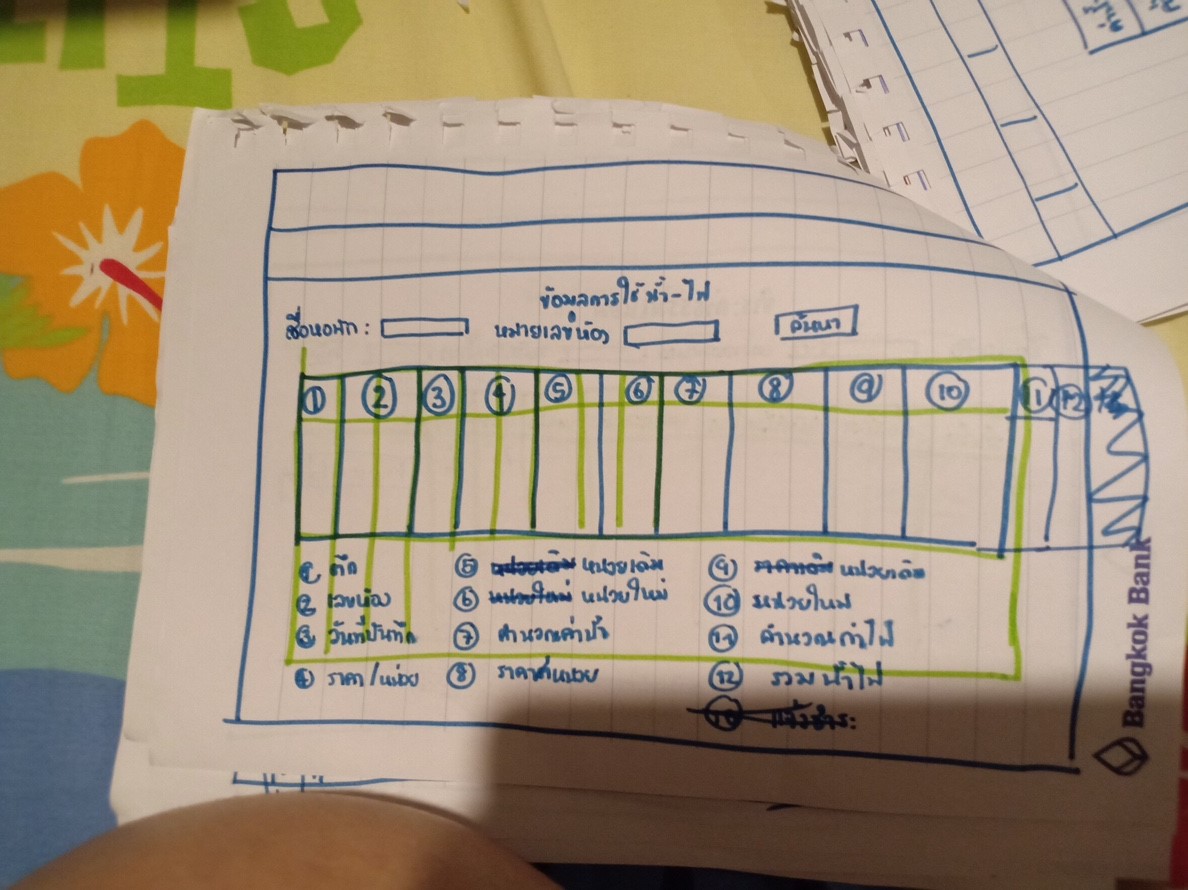 ข้อมูลการใช้น้ำ-ไฟ
ชื่อหอพัก : หมายเลขห้อง ค้นหา
1 2 3 4 5 6 7 8 9 10 11 12
1 ตึก
2 เลขห้อง
3 วันที่บันทึก
4 ราคา/หน่วย
5 หน่วยเดิม หน่วยเดิม
6 หน่วยใหม่ หน่วยใหม่
7 คำนวณค่าน้ำ
8 ราคาต่อหน่วย
9 หน่วยเดิม
10 หน่วยใหม่
11 คำนวณค่าไฟ
12 รวมน้ำไฟ
Bangkok Bank